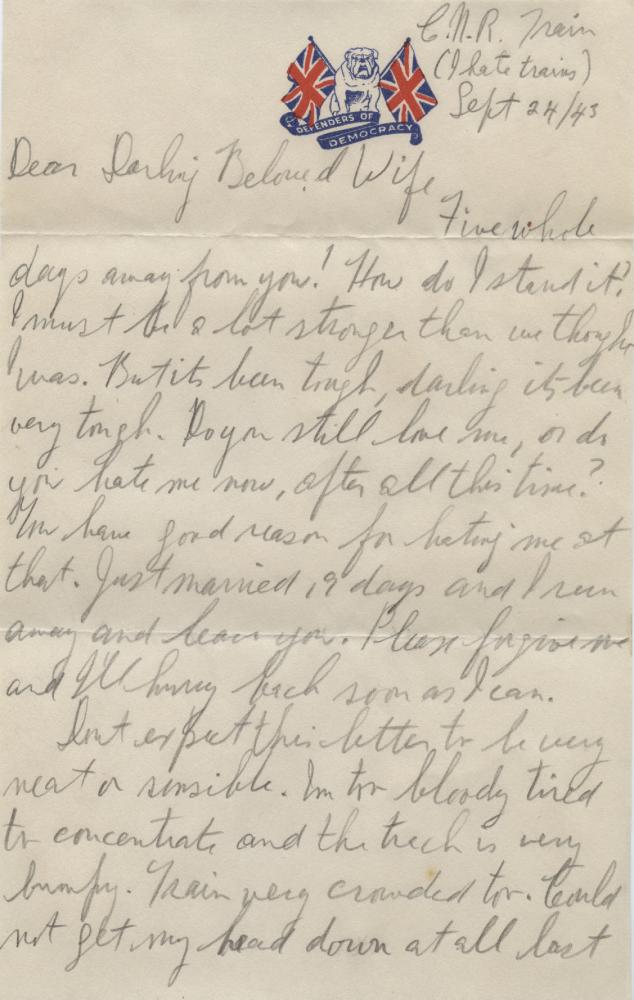 C.N.R. Train
(I hate trains)
Sept 24/43
DEFENDERS OF
DEMOCRACY
Dear Darling Beloved Wife
Five whole
days away from you! How do I stand it?
I must be a lot stronger than we thought
I was. But its been tough, darling its been
very tough. Do you still love me, or do
you hate me now, after all this time?
You have good reason for hating me at
that. Just married 19 days and I run
away and leave you. Please forgive me
and I'll hurry back soon as I can.
Dont expect this letter to be very
neat or sensible. Im too bloody tired
to concentrate and the track is very
bumpy. Train very crowded too. Could
not get my head down at all last